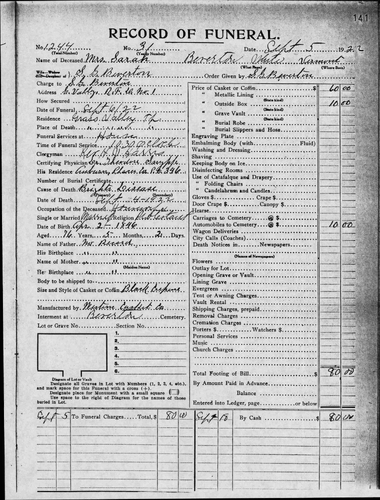 141
RECORD OF FUNERAL.
No. 1244 No. 31 Date, Sept 5 1922
(Total No.) (Yearly Number)
Name of Deceased Mrs Sarah Beverton White
(What Race) (Where Born)
S G Beverton Order Given by S G Beverton
Charge to S G Beverton
G. Valley R.F.D. No. 1
How Secured
Date of Funeral Sept 6/22
Residence Grass Valley
Place of Death
Funeral Services at House
Time of Funeral Service 10.30 O'clock
Clergyman Rev.
Certifying Physician
His Residence Auburn
Number of Burial Certificate
Cause of Death Brights Disease
(Primary) (Secondary)
Date of Death Sept 4 - 1922
Occupation of the Deceased
Single or Married Married Religion
Date of Birth Apr. 2 - 1846
Aged 76 Years 5 Months 2 Days
Name of Father Mr
His Birthplace
Name of Mother
(Maiden Name)
Her Birthplace
Body to be shipped to
Size and Style of Casket or Coffin Black
Manufactured by Western Casket Co
Interment at Beverton Cemetery.
Lot or Grave No. Section No.
1
2
3
4
5
6
Diagram of Lot or Vault
Designate all Graves in Lot with Numbers (1, 2, 3, 4, etc.), and mark space for this Funeral with a cross (+).
Designate place for Monument with a small square
Use space to the right of Diagram for the names of those buried in Lot.
Price of Casket or Coffin $ 60 00
" Metallic Lining
(State Kind)
" Outside Box 10 00
(State Kind)
" Grave Vault
(State Kind)
" Burial Robe
" Burial Slippers and Hose
Engraving Plate
Embalming Body (with Fluid)
Washing and Dressing
Shaving
Keeping Body on Ice
Disinfecting Rooms
Use of Catafalque and Drapery
" Folding Chairs
" Candelabrum and Candles
Gloves $ Crape $
Door $ Canopy $
Carriages to Cemetery @ $
Automobiles to Cemetery @ $ 10 00
Wagon Deliveries
City Calls (Coaches)
Death Notices in Newspapers
(Names of Newspapers)
Flowers
Outlay for Lot
Opening Grave or Vault
Lining Grave
Evergreen
Tent or Awning Charges
Vault Rental
Shipping Charges, prepaid
Removal Charges
Cremation Charges
Porters $ Watchers $
Personal Services
Music
Church Charges
Total Footing of Bill $ 80 00
By Amount Paid in Advance
Balance
Entered into Ledger, page or below.
Sept 5 To Funeral Charges Total, $ 80 00 Sept 18 By Cash $ 80 00